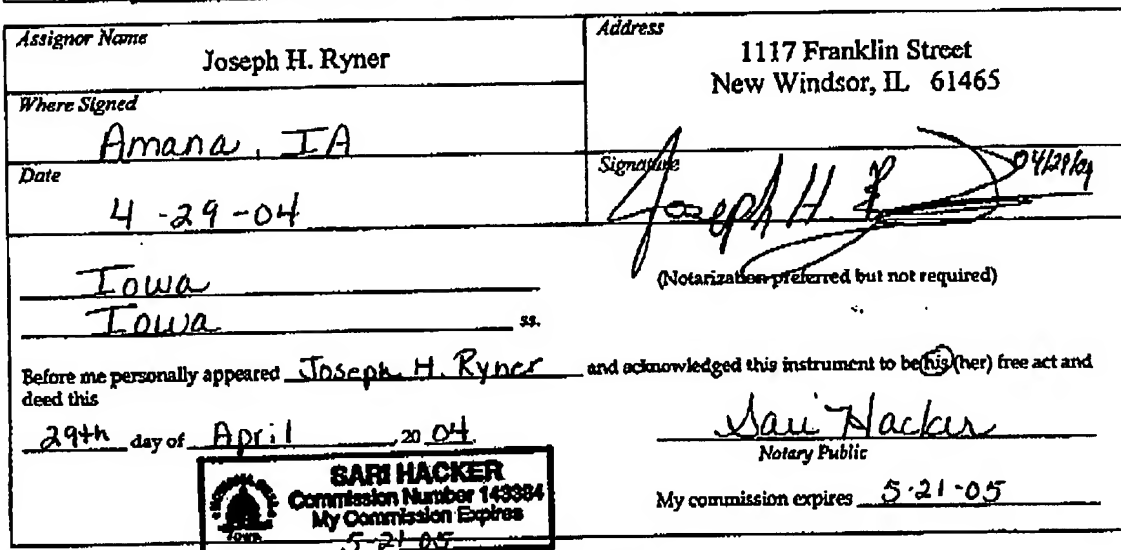 Assignor Name
Joseph H. Ryner
Address
1117 Franklin Street
New Windsor, IL 61465
Where Signed
Amana, IA
Date
4-29-04
Signature
Joseph H. R
04/29/04
Iowa
(Notarization preferred but not required)
Iowa ss.
Before me personally appeared Joseph H. Ryner and acknowledged this instrument to be (his) (her) free act and
deed this
29th day of April, 2004
Sari Hacker
Notary Public
SARI HACKER
Commission Number 143384
My Commission Expires
5-21-05
IOWA
My commission expires 5-21-05